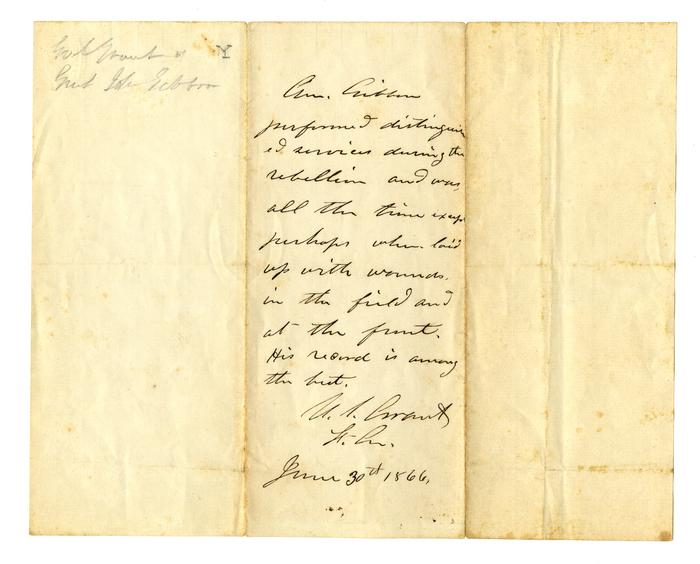 Genl Grant
Genl Jno Gibbon
Gen. Gibbon
performed distinguish
ed services during the
rebellion and was,
all the time except
perhaps when laid
up with wounds,
in the field and
at the front.
His record is among
the best.
U. S. Grant
Lt. Gn.
June 30th 1866.